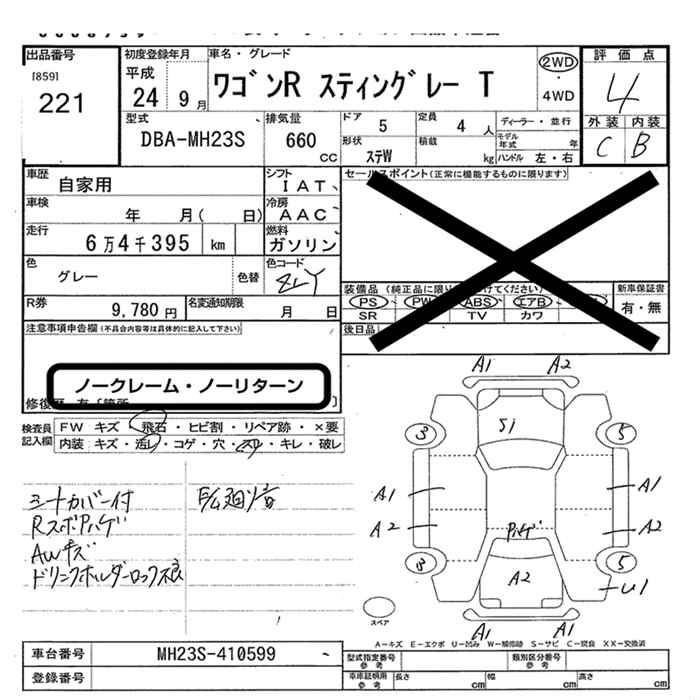 出品番号
[859]
221
初度登録年月
平成
24 9月
車名・グレード
ワゴンR スティングレー T
2WD
4WD
評価点
4
外装 内装
C B
型式
DBA-MH23S
排気量
660
CC
ドア
5
定員
4 人
ディーラー・並行
形状
ステW
積載
kg
モデル年式 年
ハンドル 左・右
車歴
自家用
シフト
IAT
セールスポイント(正常に機能するものに限ります)
車検
年 月( 日)
冷房
AAC
走行
6万4千395 km
燃料
ガソリン
色
グレー
色替
色コード
ZLY
装備品
PS PW ABS エアB
SR TV カワ
新車保証書
有・無
R券
9,780 円
名変通知期限
月 日
後日品
注意事項申告欄(不具合内容等は具体的に記入して下さい)
ノークレーム・ノーリターン
検査員記入欄
FW キズ・飛石・ヒビ割・リペア跡・×要
内装 キズ・汚レ・コゲ・穴・スレ・キレ・破レ
シートカバー付
Rスポアハゲ
AWキズ
ドリンクホルダーロック不良
A1 A2
S1
3 5
A1 A1
A2 A2
ハゲ
3 5
A2
U1
スペア
A1 A1
A-キズ E-エクボ U-凹み W-補修跡 S-サビ C-腐食 XX-交換済
車台番号
MH23S-410599
登録番号
型式指定番号
参考
類別区分番号
参考
車庫証明用
参考
長さ cm
幅 cm
高さ cm